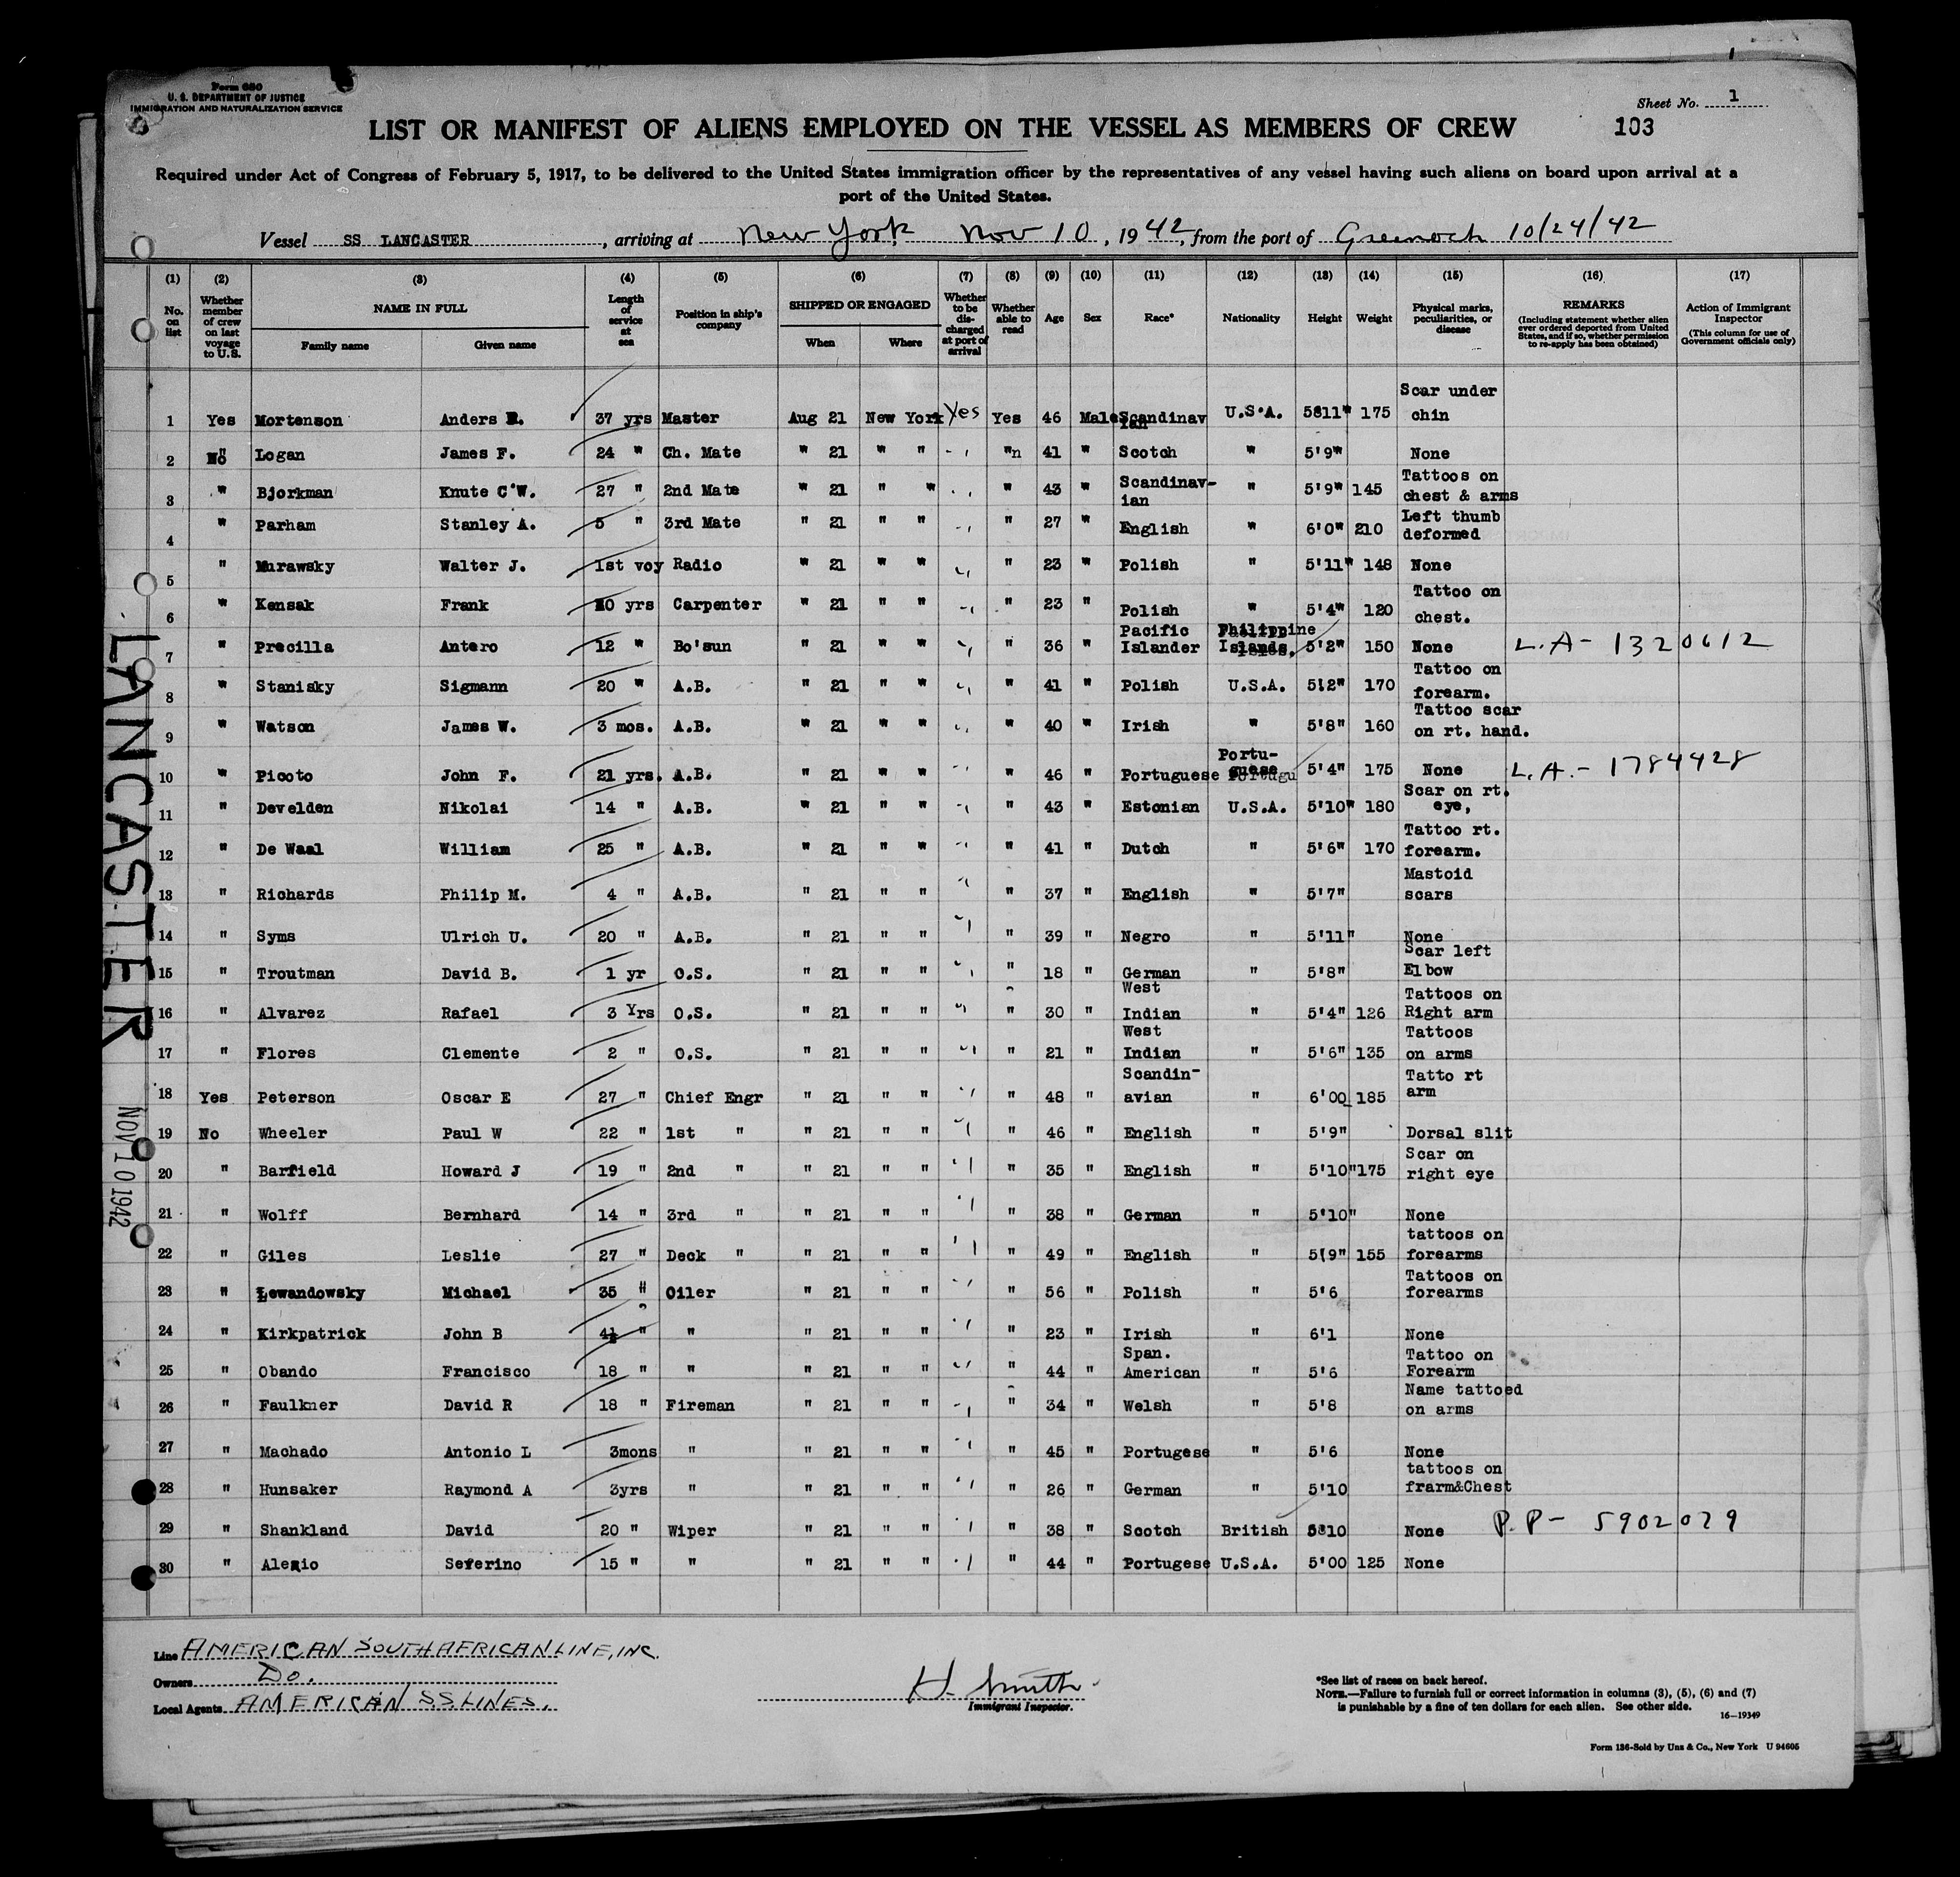 Form 680
U. S. DEPARTMENT OF JUSTICE
IMMIGRATION AND NATURALIZATION SERVICE
Sheet No. 1
LIST OR MANIFEST OF ALIENS EMPLOYED ON THE VESSEL AS MEMBERS OF CREW
103
Required under Act of Congress of February 5, 1917, to be delivered to the United States immigration officer by the representatives of any vessel having such aliens on board upon arrival at a
port of the United States.
Vessel SS LANCASTER, arriving at New York Nov 10, 1942, from the port of Greenock 10/24/42
(1) (2) (3) (4) (5) (6) (7) (8) (9) (10) (11) (12) (13) (14) (15) (16) (17)
No. on list
Whether member of crew on last voyage to U.S.
NAME IN FULL
Family name Given name
Length of service at sea
Position in ship's company
SHIPPED OR ENGAGED
When Where
Whether to be discharged at port of arrival
Whether able to read
Age
Sex
Race*
Nationality
Height
Weight
Physical marks, peculiarities, or disease
REMARKS
(Including statement whether alien ever ordered deported from United States, and if so, whether permission to re-apply has been obtained)
Action of Immigrant Inspector
(This column for use of Government officials only)
1 Yes Mortenson Anders R. 37 yrs Master Aug 21 New York Yes Yes 46 Male Scandinavian U.S.A. 5'11" 175 Scar under chin
2 No Logan James F. 24 " Ch. Mate " 21 " " " 41 " Scotch " 5'9" None
3 " Bjorkman Knute C W. 27 " 2nd Mate " 21 " " " 43 " Scandinav-ian " 5'9" 145 Tattoos on chest & arms
4 " Parham Stanley A. 5 " 3rd Mate " 21 " " " 27 " English " 6'0" 210 Left thumb deformed
5 " Murawsky Walter J. 1st voy Radio " 21 " " " 23 " Polish " 5'11" 148 None
6 " Kensak Frank 10 yrs Carpenter " 21 " " " 23 " Polish " 5'4" 120 Tattoo on chest.
7 " Precilla Antero 12 " Bo'sun " 21 " " " 36 " Pacific Islander Philippine Islands 5'2" 150 None L.A- 1320612
8 " Stanisky Sigmann 20 " A.B. " 21 " " " 41 " Polish U.S.A. 5'2" 170 Tattoo on forearm.
9 " Watson James W. 3 mos. A.B. " 21 " " " 40 " Irish " 5'8" 160 Tattoo scar on rt. hand.
10 " Picoto John F. 21 yrs. A.B. " 21 " " " 46 " Portuguese Portu-guese 5'4" 175 None L.A.- 1784428
11 " Develden Nikolai 14 " A.B. " 21 " " " 43 " Estonian U.S.A. 5'10" 180 Scar on rt. eye,
12 " De Waal William 25 " A.B. " 21 " " " 41 " Dutch " 5'6" 170 Tattoo rt. forearm.
13 " Richards Philip M. 4 " A.B. " 21 " " " 37 " English " 5'7" Mastoid scars
14 " Syms Ulrich U. 20 " A.B. " 21 " " " 39 " Negro " 5'11" None
15 " Troutman David B. 1 yr O.S. " 21 " " " 18 " German " 5'8" Scar left Elbow
16 " Alvarez Rafael 3 Yrs O.S. " 21 " " " 30 " West Indian " 5'4" 126 Tattoos on Right arm
17 " Flores Clemente 2 " O.S. " 21 " " " 21 " West Indian " 5'6" 135 Tattoos on arms
18 Yes Peterson Oscar E 27 " Chief Engr " 21 " " " 48 " Scandin-avian " 6'00 185 Tatto rt arm
19 No Wheeler Paul W 22 " 1st " " 21 " " " 46 " English " 5'9" Dorsal slit
20 " Barfield Howard J 19 " 2nd " " 21 " " " 35 " English " 5'10" 175 Scar on right eye
21 " Wolff Bernhard 14 " 3rd " " 21 " " " 38 " German " 5'10" None
22 " Giles Leslie 27 " Deck " " 21 " " " 49 " English " 5'9" 155 tattoos on forearms
23 " Lewandowsky Michael 35 " Oiler " 21 " " " 56 " Polish " 5'6 Tattoos on forearms
24 " Kirkpatrick John B 4½ " " " 21 " " " 23 " Irish " 6'1 None
25 " Obando Francisco 18 " " " 21 " " " 44 " Span. American " 5'6 Tattoo on Forearm
26 " Faulkner David R 18 " Fireman " 21 " " " 34 " Welsh " 5'8 Name tattoed on arms
27 " Machado Antonio L 3mons " " 21 " " " 45 " Portugese " 5'6 None
28 " Hunsaker Raymond A 3yrs " " 21 " " " 26 " German " 5'10 tattoos on frarm&Chest
29 " Shankland David 20 " Wiper " 21 " " " 38 " Scotch British 5'10 None P.P- 5902029
30 " Alegio Seferino 15 " " " 21 " " " 44 " Portugese U.S.A. 5'00 125 None
LANCASTER
NOV 10 1942
Line AMERICAN SOUTH AFRICAN LINE, INC.
Owners Do.
Local Agents AMERICAN S.S. LINES.
H. Smith
Immigrant Inspector.
*See list of races on back hereof.
NOTE.—Failure to furnish full or correct information in columns (3), (5), (6) and (7)
is punishable by a fine of ten dollars for each alien. See other side.
16—19349
Form 136-Sold by Unz & Co., New York U 94605